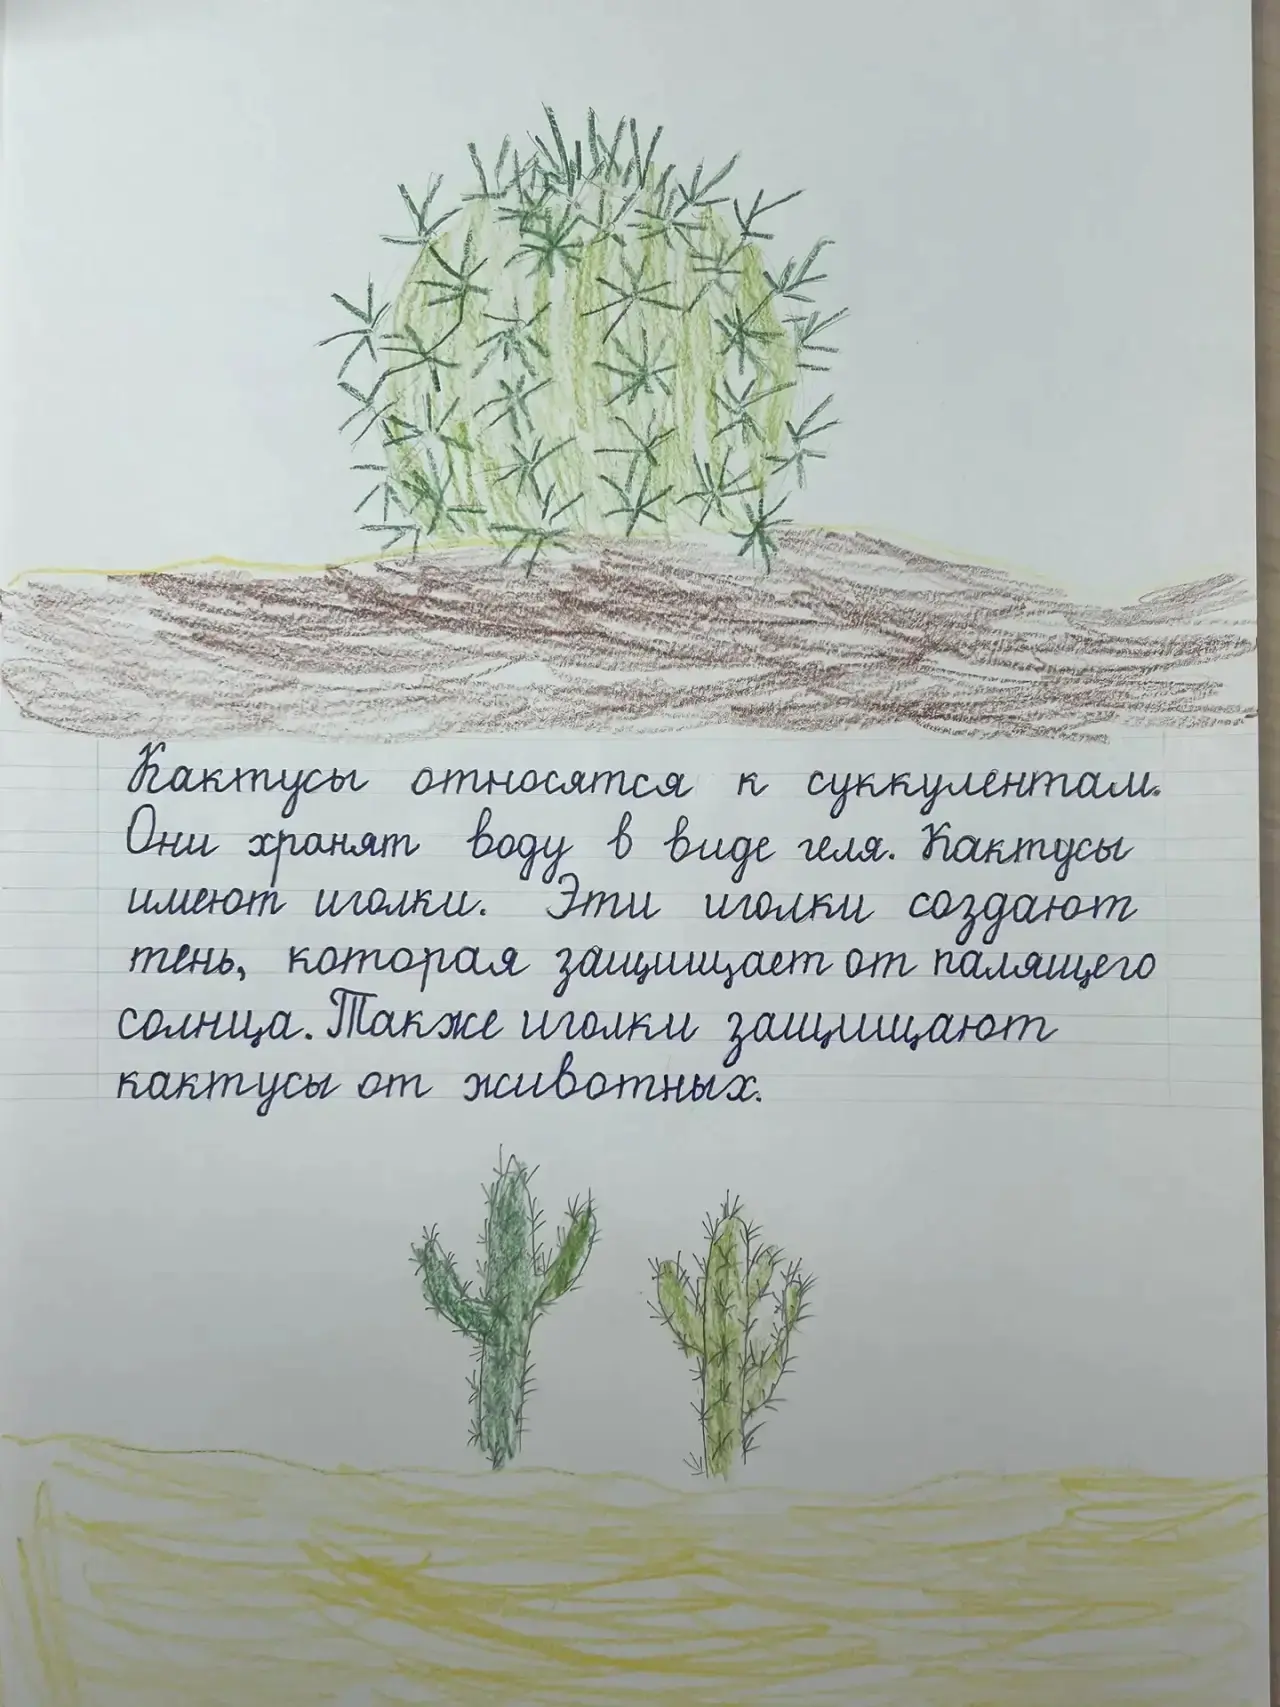 Кактусы относятся к суккулентам.
Они хранят воду в виде геля. Кактусы
имеют иголки. Эти иголки создают
тень, которая защищает от палящего
солнца. Также иголки защищают
кактусы от животных.